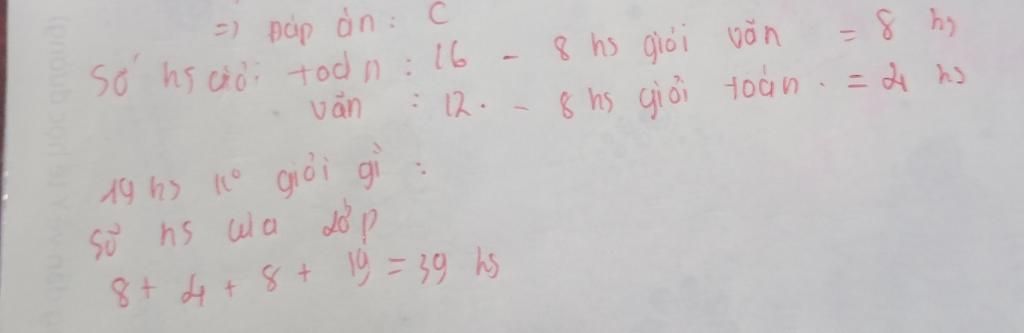 => Đáp án : C
Số hs giỏi toán : 16 - 8 hs giỏi văn = 8 hs
văn : 12 . - 8 hs giỏi toán . = 4 hs
19 hs ko giỏi gì :
Số hs của lớp
8 + 4 + 8 + 19 = 39 hs